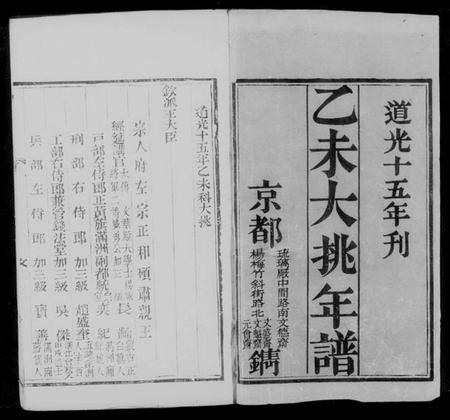 道光十五年刊
乙未大挑年譜
京都
琉璃厰中間路南文德齋
楊梅竹斜街路北
文盛齋
元會齋
鐫
道光十五年乙未科大挑
欽派王大臣
宗人府左宗正和碩肅親王
經筵講官
長
戶部左侍郎正黃旗滿洲副都統
紀
刑部右侍郎加三級趙盛奎
工部右侍郎兼管錢法堂加三級吳傑
兵部左侍郎加三級寶善